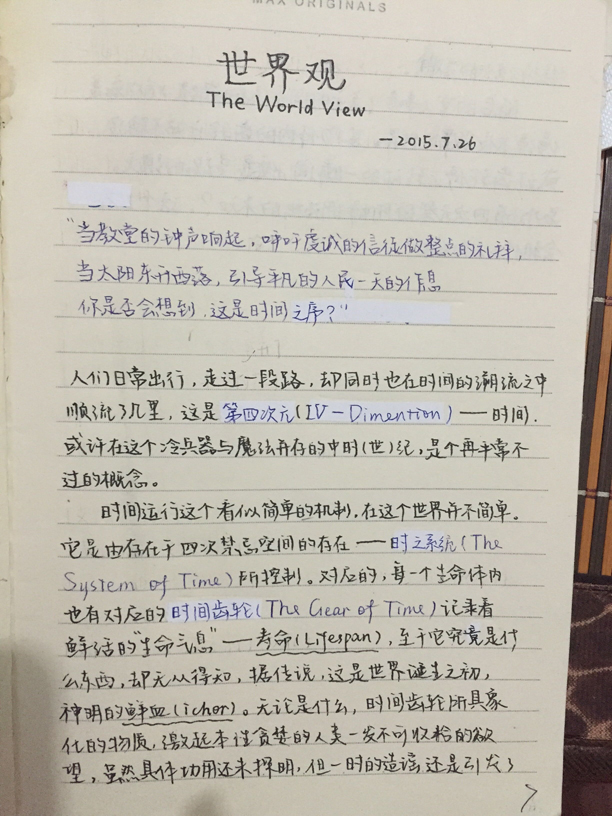 MAX ORIGINALS
世界观
The World View
—2015.7.26
"当教堂的钟声响起，呼吁虔诚的信徒做整点的礼拜，
当太阳东升西落，引导平凡的人民一天的作息
你是否会想到，这是时间之序？"
人们日常出行，走过一段路，却同时也在时间的潮流之中
顺流了几里，这是第四次元(IV-Dimention)——时间.
或许在这个冷兵器与魔法并存的中时(世)纪，是个再平常不
过的概念。
时间运行这个看似简单的机制，在这个世界并不简单。
它是由存在于四次禁忌空间的存在——时之系统(The
System of Time)所控制。对应的，每一个生命体内
也有对应的时间齿轮(The Gear of Time)记录着
鲜活的"生命气息"——寿命(Lifespan)，至于它究竟是什
么东西，却无从得知，据传说，这是世界诞生之初，
神明的鲜血(ichor)。无论是什么，时间齿轮所具象
化的物质，激起本性贪婪的人类一发不可收拾的欲
望，虽然具体功用还未探明，但一时的造谣还是引发了